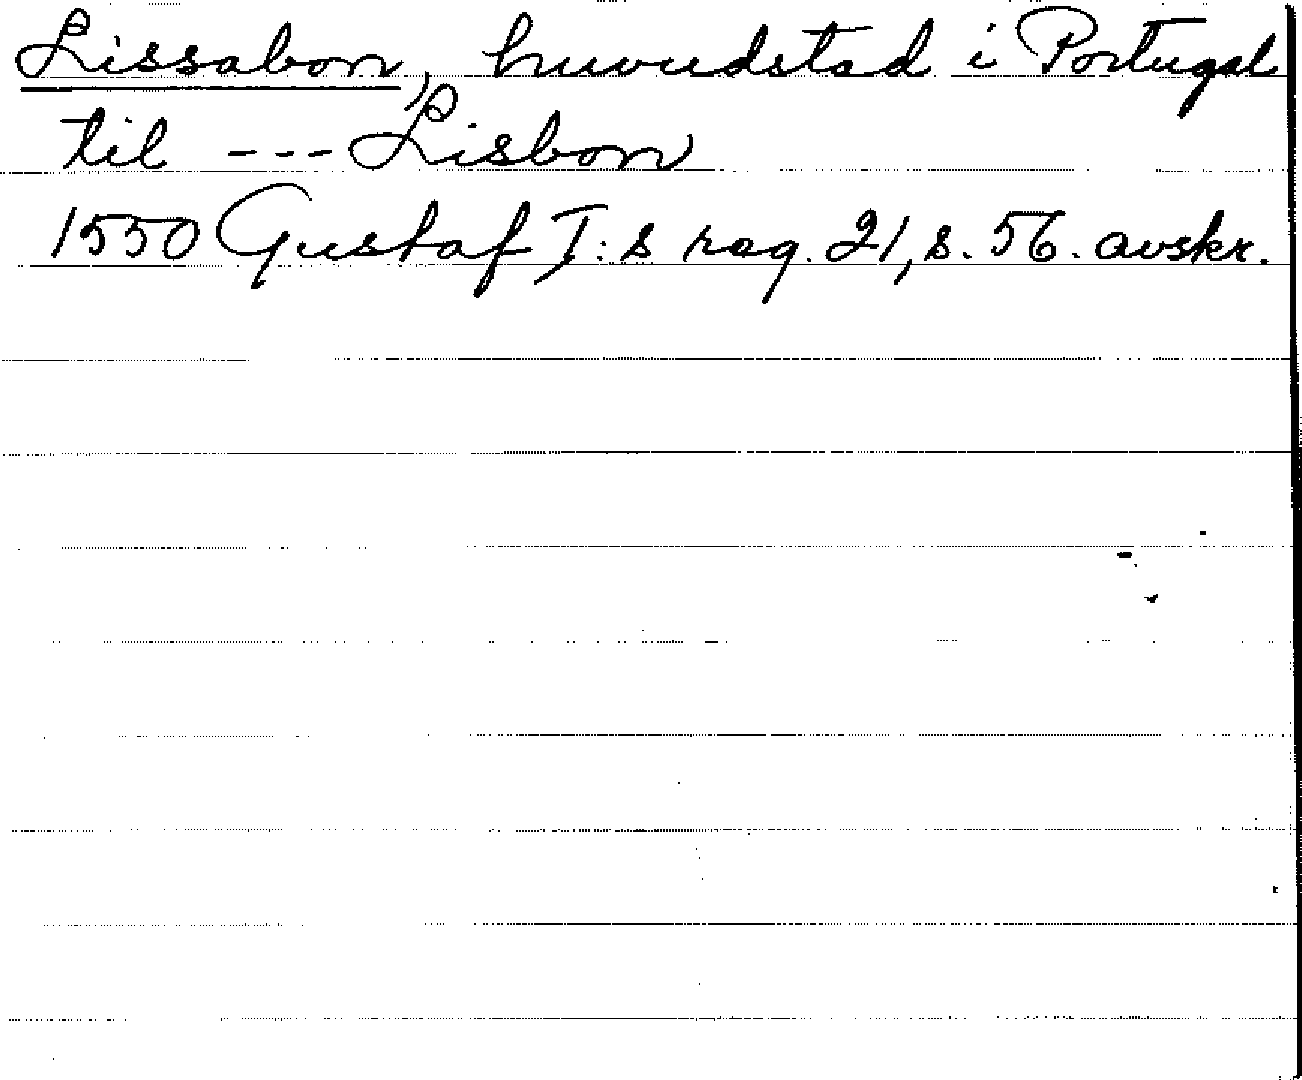 Lissabon, huvudstad i Portugal
til --- Lisbon
1550 Gustaf I:s reg. 21, s. 56. avskr.